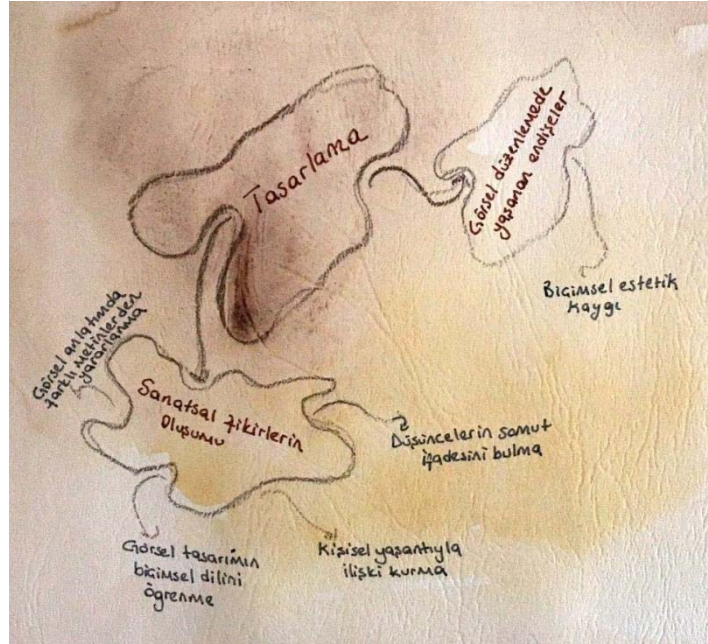 Tasarlama
Görsel düzenlemede
yaşanan endişeler
Biçimsel estetik
kaygı
Görsel anlatımda
farklı metinlerden
yararlanma
Sanatsal fikirlerin
Oluşumu
Düşüncelerin somut
ifadesini bulma
Görsel tasarımın
biçimsel dilini
öğrenme
Kişisel yaşantıyla
ilişki kurma